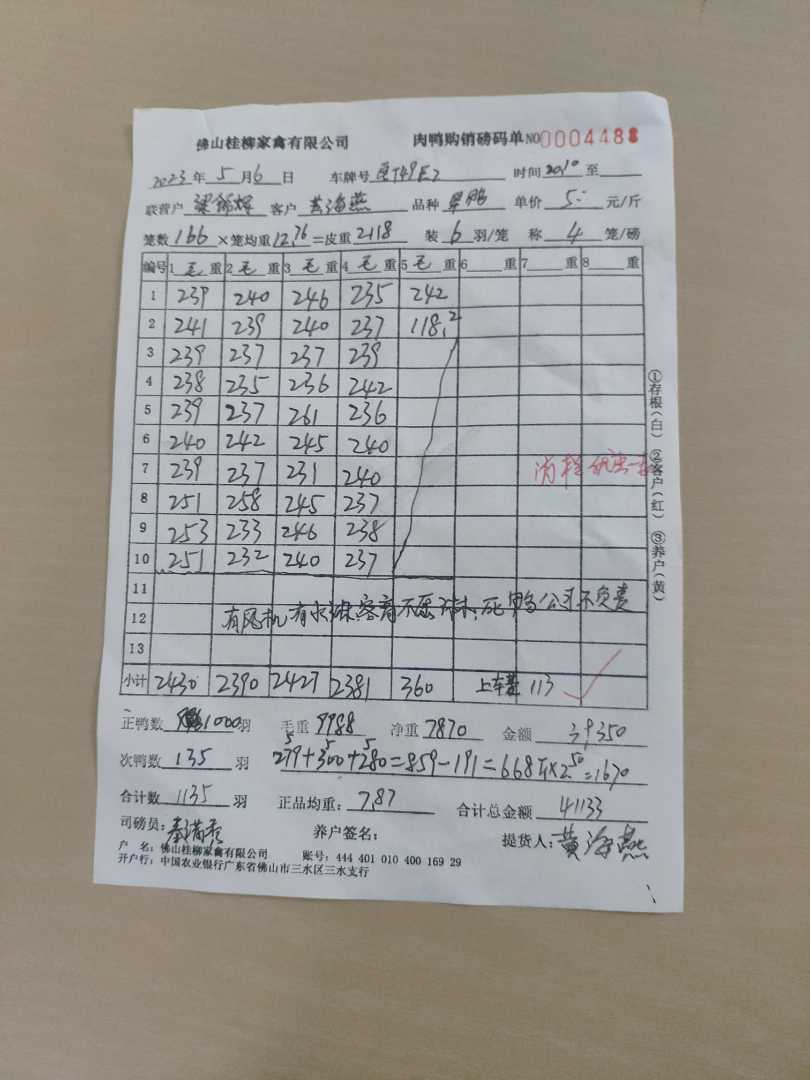 佛山桂柳家禽有限公司 肉鸭购销磅码单 NO 0004488
2023年 5月6日 车牌号 时间 20:10 至
联营户 客户 黄海燕 品种 单价 5 元/斤
笼数 166 ×笼均重 12.76 =皮重 2118 装 6 羽/笼 称 4 笼/磅
编号 1 毛 重 2 毛 重 3 毛 重 4 毛 重 5 毛 重 6 重 7 重 8 重
1 239 240 246 235 242
2 241 239 240 237 118.2
3 239 237 237 239
4 238 235 236 242
5 239 237 261 236
6 240 242 245 240
7 239 237 231 240
8 251 258 245 237
9 253 233 246 238
10 251 232 240 237
11
12 有风机有水 客商不愿 死鸭公司不负责
13
小计 2430 2390 2427 2381 360 上车费 113
正鸭数 1000 羽 毛重 9988 净重 7870 金额 39350
次鸭数 135 羽 279.5+300.5+280.5=859-191=668斤×2.50=1670
合计数 1135 羽 正品均重: 7.87 合计总金额 41133
司磅员: 养户签名: 提货人: 黄海燕
户 名: 佛山桂柳家禽有限公司 账号: 444 401 010 400 169 29
开户行: 中国农业银行广东省佛山市三水区三水支行
①存根(白) ②客户(红) ③养户(黄)